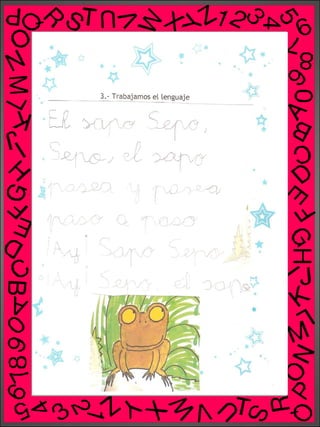 3.- Trabajamos el lenguaje
El sapo Sepo,
Sepo, el sapo
pasea y pasea
paso a paso
¡Ay! Sapo Sepo
¡Ay! Sepo, el sapo